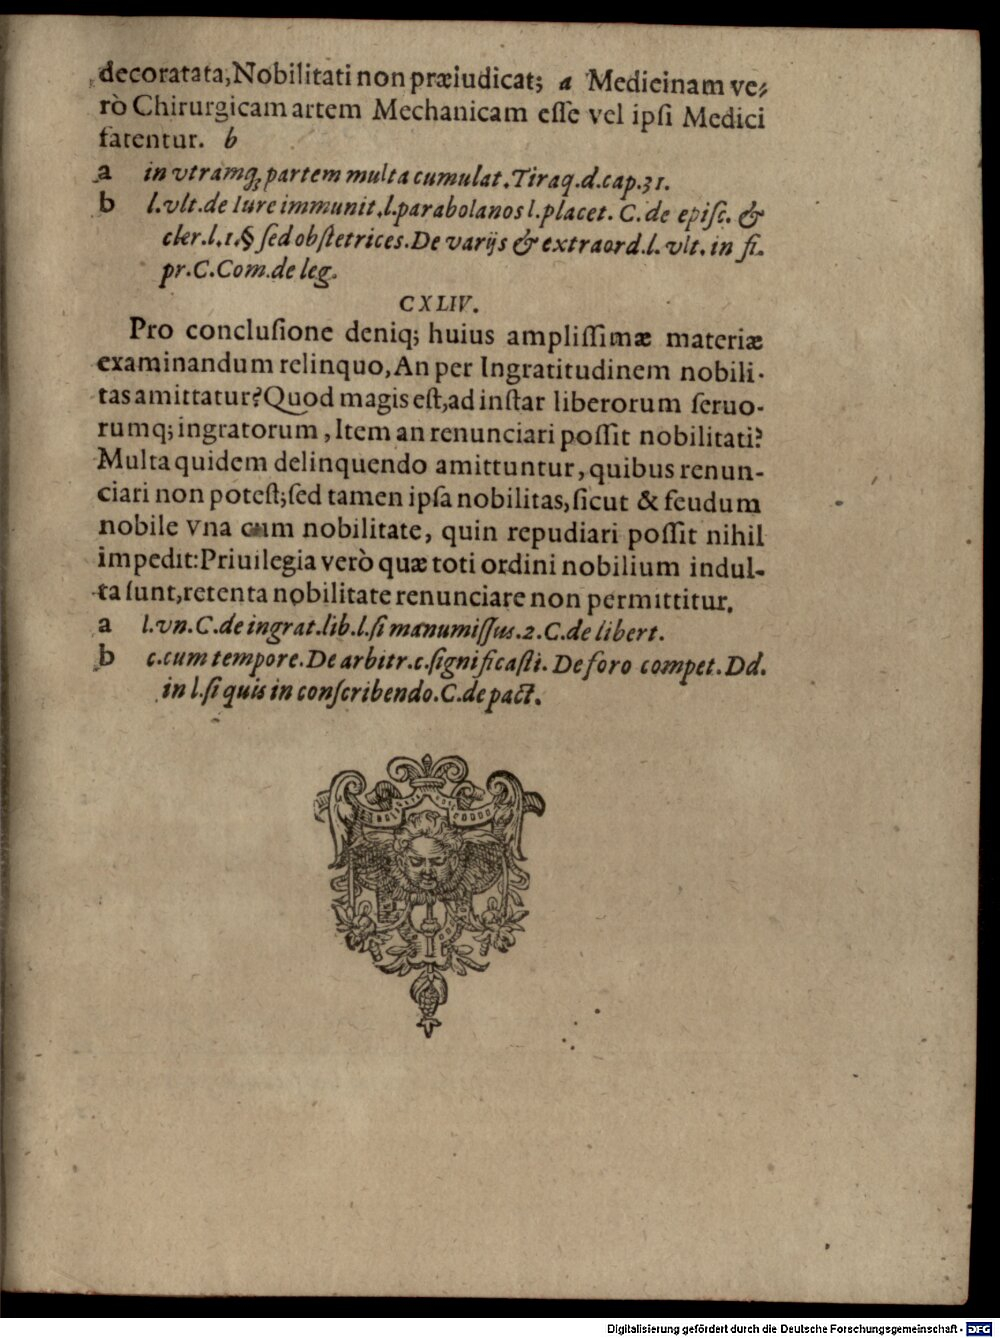 decoratata,Nobilitati non præiudicat; a Medicinam ve-
rò Chirurgicam artem Mechanicam eſſe vel ipſi Medici
fatentur. b
a in vtramq; partem multa cumulat.Tiraq.d.cap.31.
b l.vlt.de Iure immunit.l.parabolanos l.placet. C. de epiſc. &
cler.l.1.§ ſed obſtetrices.De varijs & extraord.l. vlt. in fi.
pr.C.Com.de leg.
CXLIV.
Pro concluſione deniq; huius ampliſſimæ materiæ
examinandum relinquo,An per Ingratitudinem nobili-
tas amittatur?Quod magis eſt,ad inſtar liberorum ſeruo-
rumq; ingratorum,Item an renunciari poſſit nobilitati?
Multa quidem delinquendo amittuntur,quibus renun-
ciari non poteſt;ſed tamen ipſa nobilitas,ſicut & feudum
nobile vna cum nobilitate, quin repudiari poſſit nihil
impedit:Priuilegia verò quæ toti ordini nobilium indul-
ta ſunt,retenta nobilitate renunciare non permittitur.
a l.vn.C.de ingrat.lib.l.ſi manumiſſus.2.C.de libert.
b c.cum tempore.De arbitr.c.ſignificaſti. De foro compet.Dd.
in l.ſi quis in conſcribendo.C.de pact.
Digitalisierung gefördert durch die Deutsche Forschungsgemeinschaft - DFG